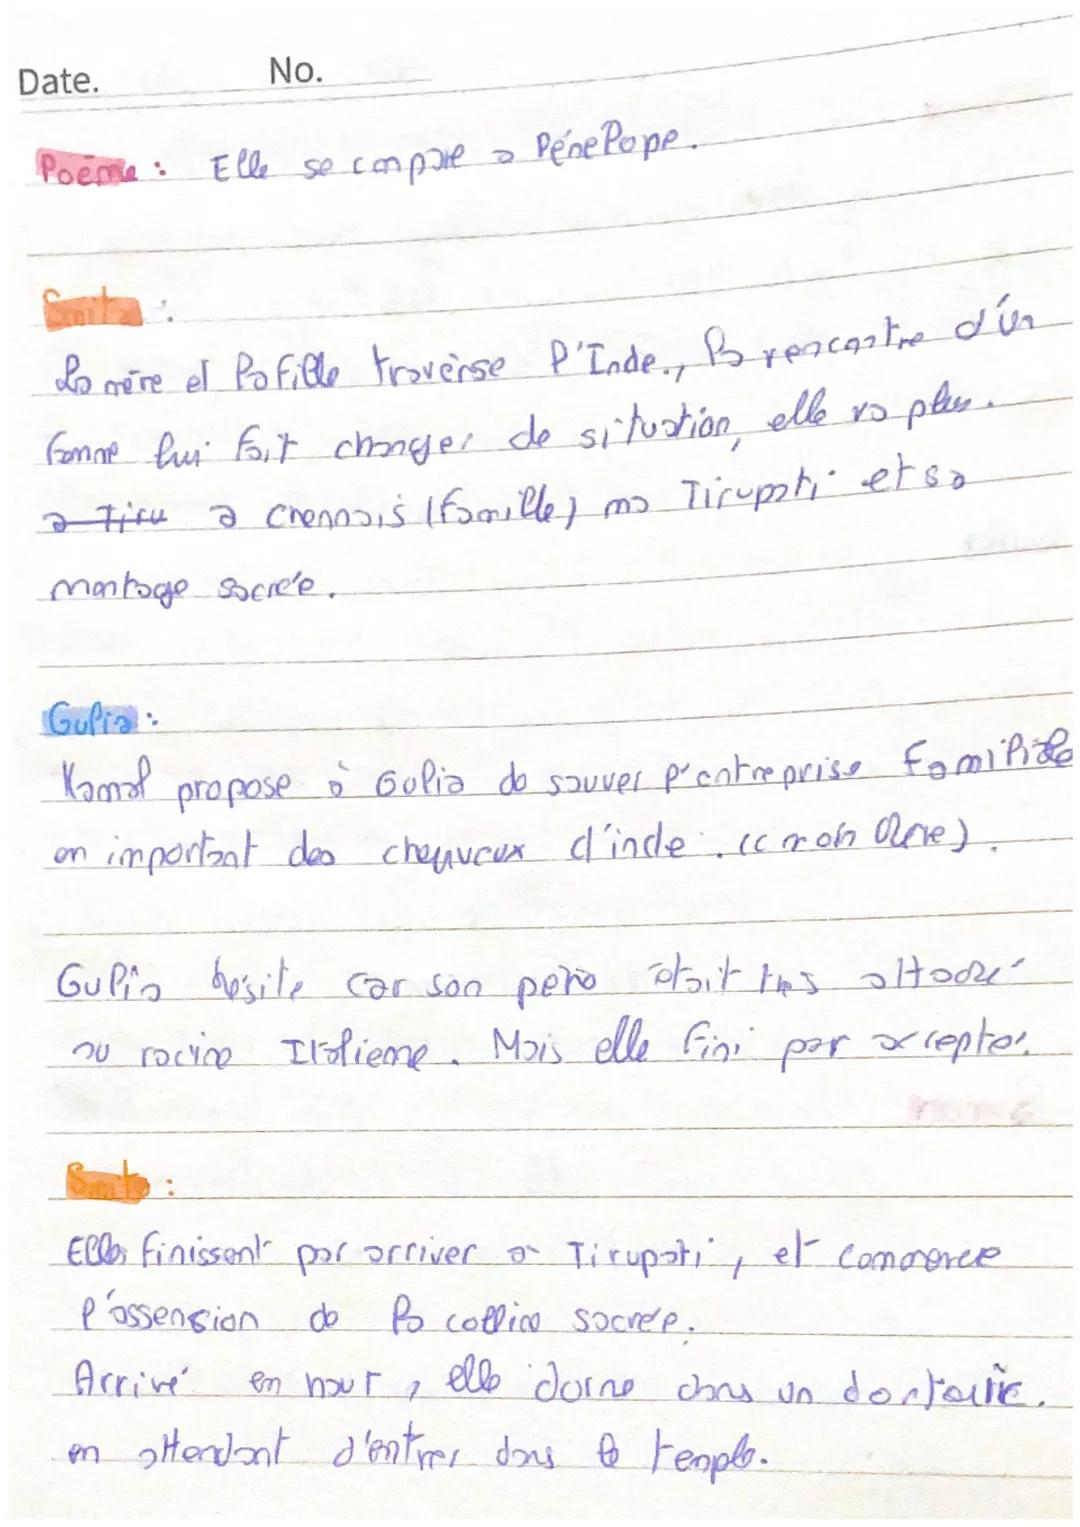 Date. No.
Poème : Elle se compare a Pénélope.
Smita :
La mère et la fille traverse l'Inde., la rencontre d'un
femme lui fait changer de situation, elle va plus.
a Tiru a Chennais (famille) ma Tirupati et sa
montage sacrée.
Gulia :
Kamal propose à Gulia de sauver l'entreprise familiale
en important des cheuveux d'inde. (
Gulia hesite car son père était très attaché
au racine Italieme. Mais elle fini par accepter.
Smita :
Elles finissent par arriver a Tirupati, et commence
l'assension de la colline sacrée.
Arrivé en haut, elle dorme dans un dortoire.
en attendant d'entrer dans le temple.